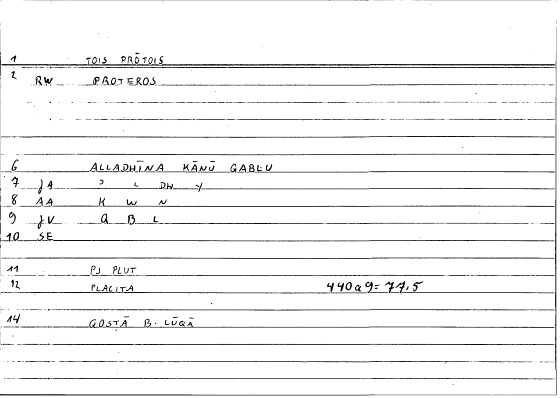 1 TOIS PRŌTOIS
2 RW PROTEROS
6 ALLADHĪNA KĀNŪ QABLU
7 JA ' L DH Y
8 AA K W N
9 JV Q B L
10 SE
11 PJ PLUT
12 PLACITA 440a9=77.5
14 QOSṬĀ B. LŪQĀ